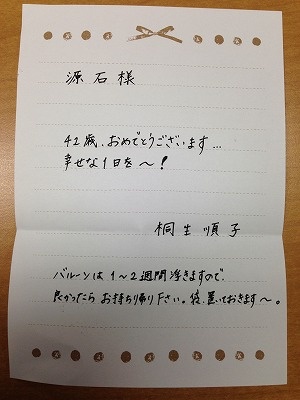 源石様
42歳、おめでとうございます…
幸せな1日を〜!
桐生順子
バルーンは1〜2週間浮きますので、
良かったらお持ち帰り下さい。袋、置いておきます〜。